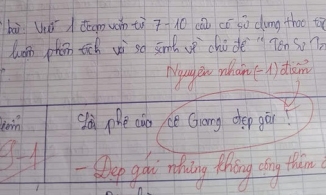 bài: Viết 1 đoạn văn từ 7-10 câu có sử dụng thao tác
luận phân tích và so sánh về chủ đề "Tôn Sư
Nguyên nhân (-1) điểm
điểm
Lời phê của cô Giang đẹp gái!
9-1
- Đẹp gái nhưng không cộng thêm